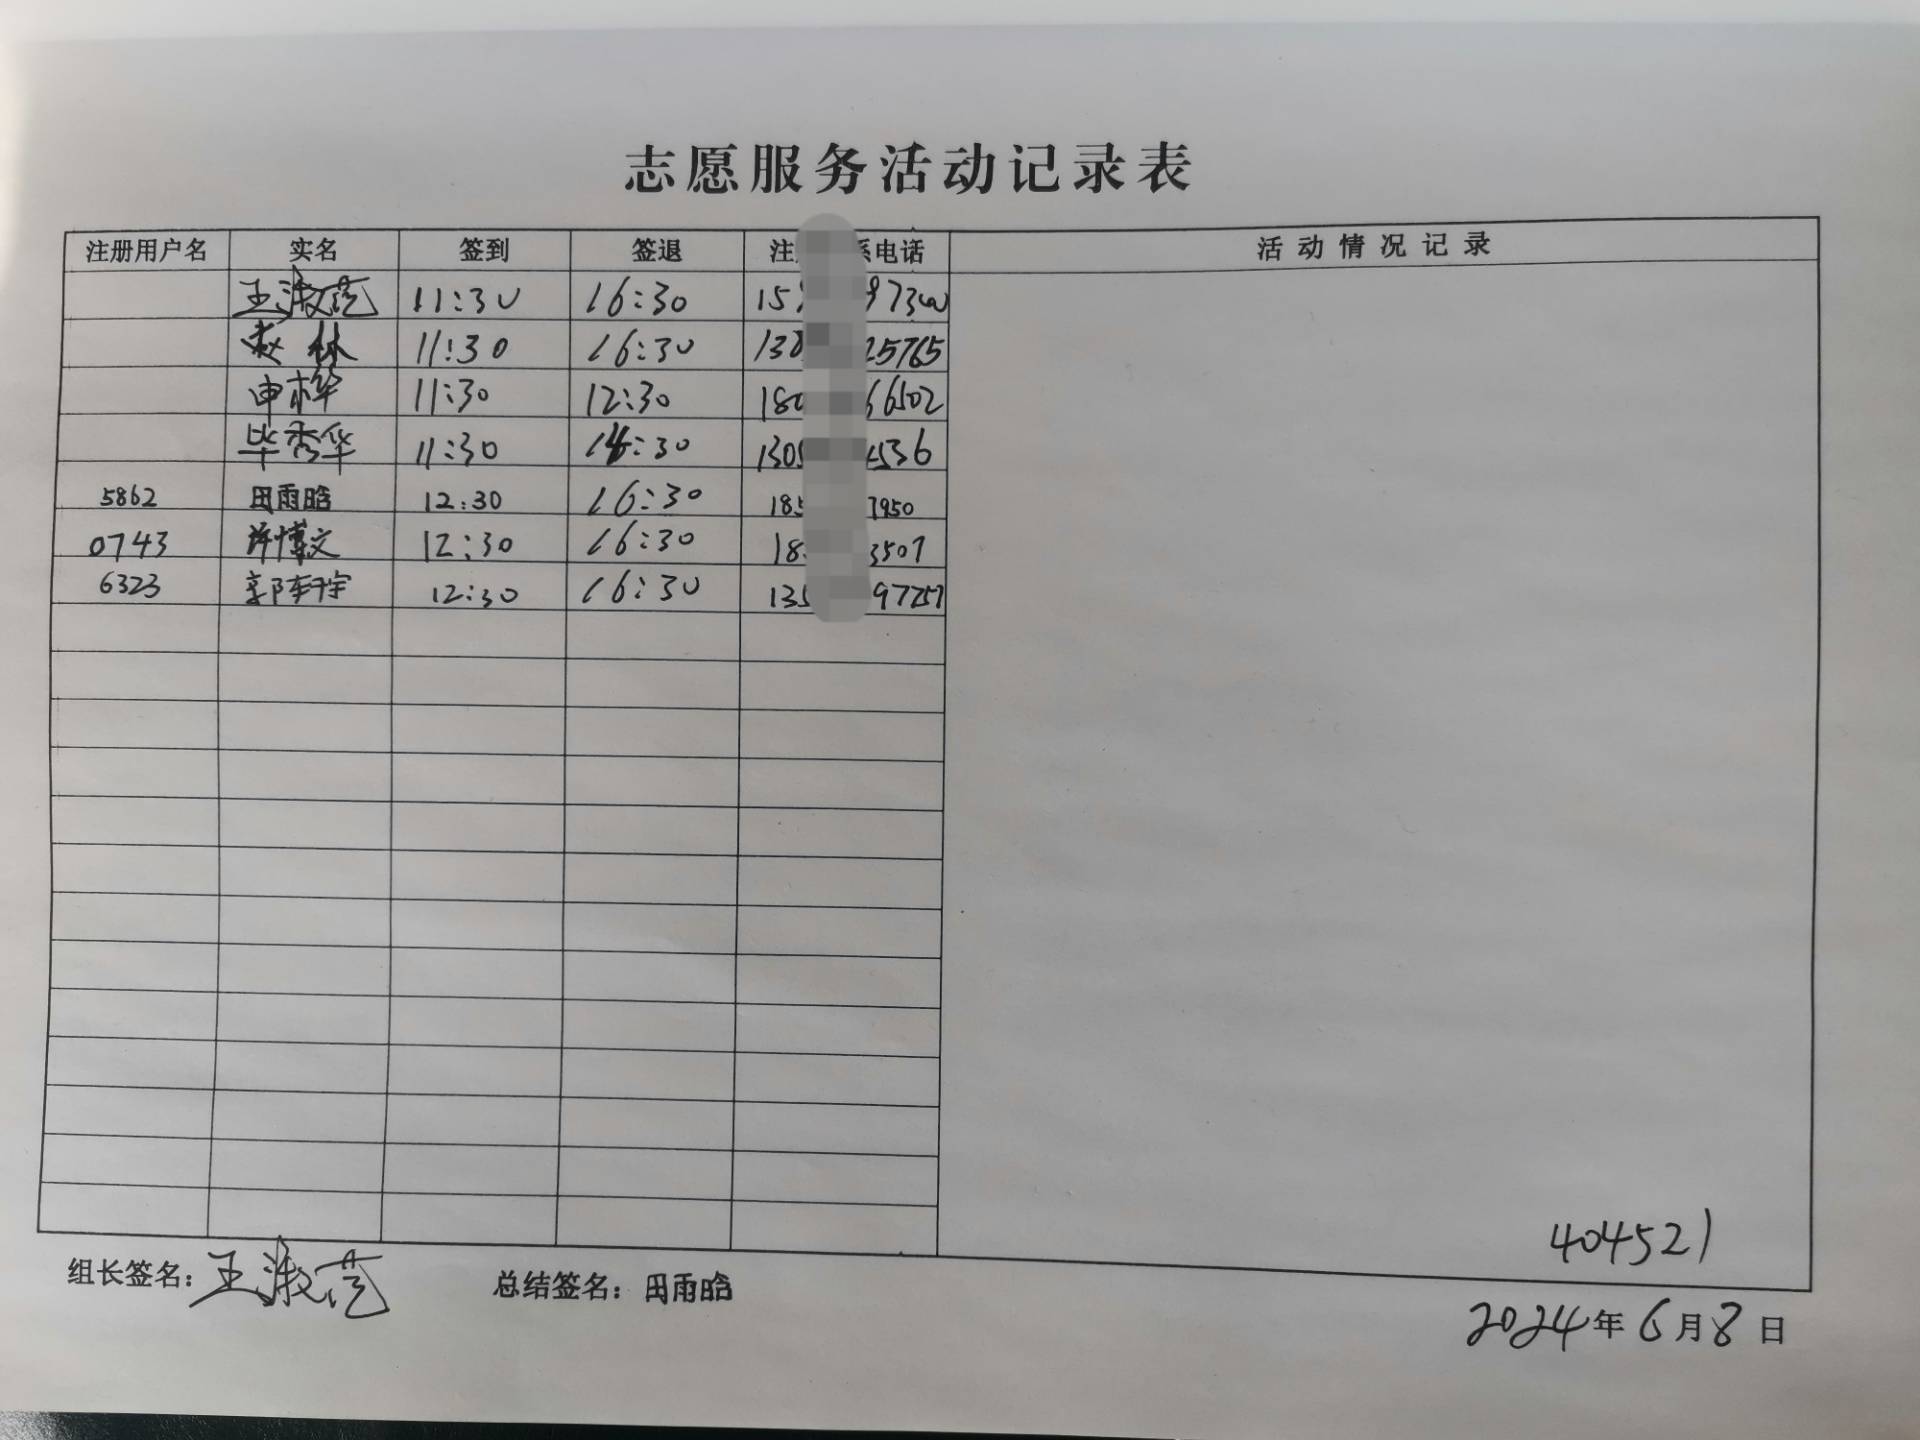 志愿服务活动记录表
注册用户名 实名 签到 签退 注 系电话 活动情况记录
王淑范 11:30 16:30 15 973
赵林 11:30 16:30 130 25765
申桦 11:30 12:30 180 66502
毕秀华 11:30 14:30 130 4536
5862 田雨晗 12:30 16:30 185 7950
0743 许博文 12:30 16:30 18 3507
6323 郭轩宇 12:30 16:30 135 97257
404521
组长签名：王淑范 总结签名：田雨晗
2024年6月8日